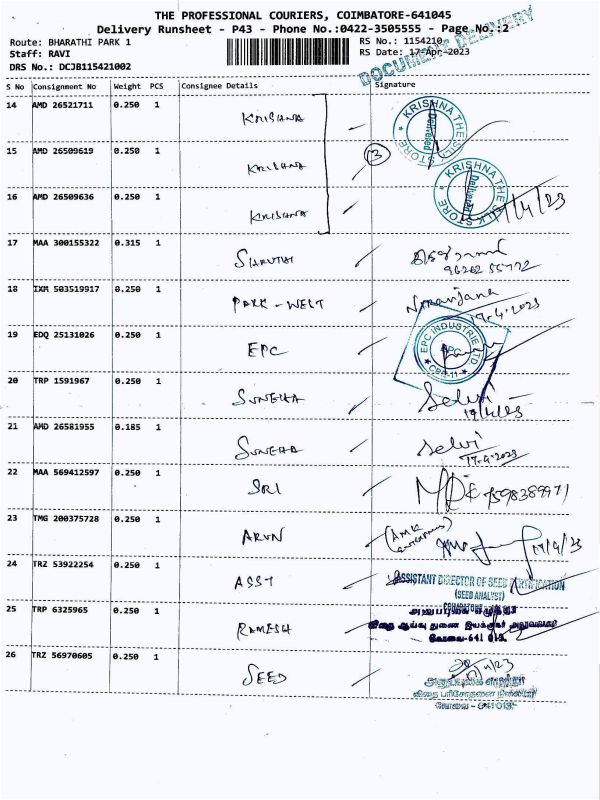 THE PROFESSIONAL COURIERS, COIMBATORE-641045
Delivery Runsheet - P43 - Phone No.:0422-3505555 - Page No.:2
Route: BHARATHI PARK 1 RS No.: 1154210
Staff: RAVI RS Date: 17-Apr-2023
DRS No.: DCJB115421002
DOCUMENT DELIVERY
S No Consignment No Weight PCS Consignee Details Signature
14 AMD 26521711 0.250 1 KRISHNA
KRISHNA THE SILK STORE Delivered
15 AMD 26509619 0.250 1 KRISHNA 13
16 AMD 26509636 0.250 1 KRISHNA 17/4/23
KRISHNA THE SILK STORE Delivered
17 MAA 300155322 0.315 1 SHRUTHI
18 IXM 503519917 0.250 1 PARK-WEST Niranjana
17-4-2023
19 EDQ 25131026 0.250 1 EPC
EPC INDUSTRIE LTD
20 TRP 1591967 0.250 1 SUNEHA Selvi
17/4/23
21 AMD 26581955 0.185 1 SUNEHA Selvi
17-4-2023
22 MAA 569412597 0.250 1 SRI
23 TMG 200375728 0.250 1 ARUN 17/4/23
24 TRZ 53922254 0.250 1 ASST ASSISTANT DIRECTOR OF SEED CERTIFICATION
(SEED ANALYST)
25 TRP 6325965 0.250 1 RAMESH
கோவை-641 013.
26 TRZ 56970605 0.250 1 SEED
கோவை - 641 013.